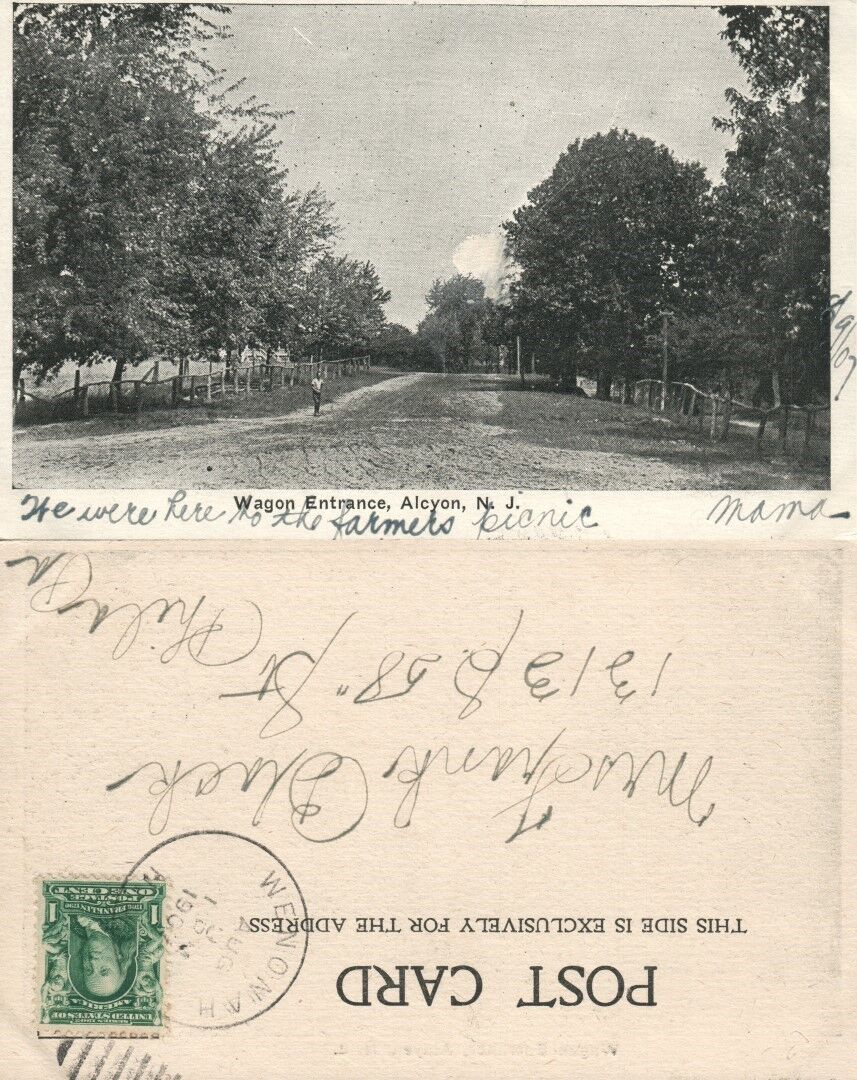 Wagon Entrance, Alcyon, N. J.
We were here to the farmers picnic
Mama
8/9/07
POST CARD
THIS SIDE IS EXCLUSIVELY FOR THE ADDRESS
WENONAH
AUG
1
UNITED STATES OF
AMERICA
1 1
POSTAGE
ONE CENT
Mrs Frank Black
1313 S. 58" St
Phila
Pa